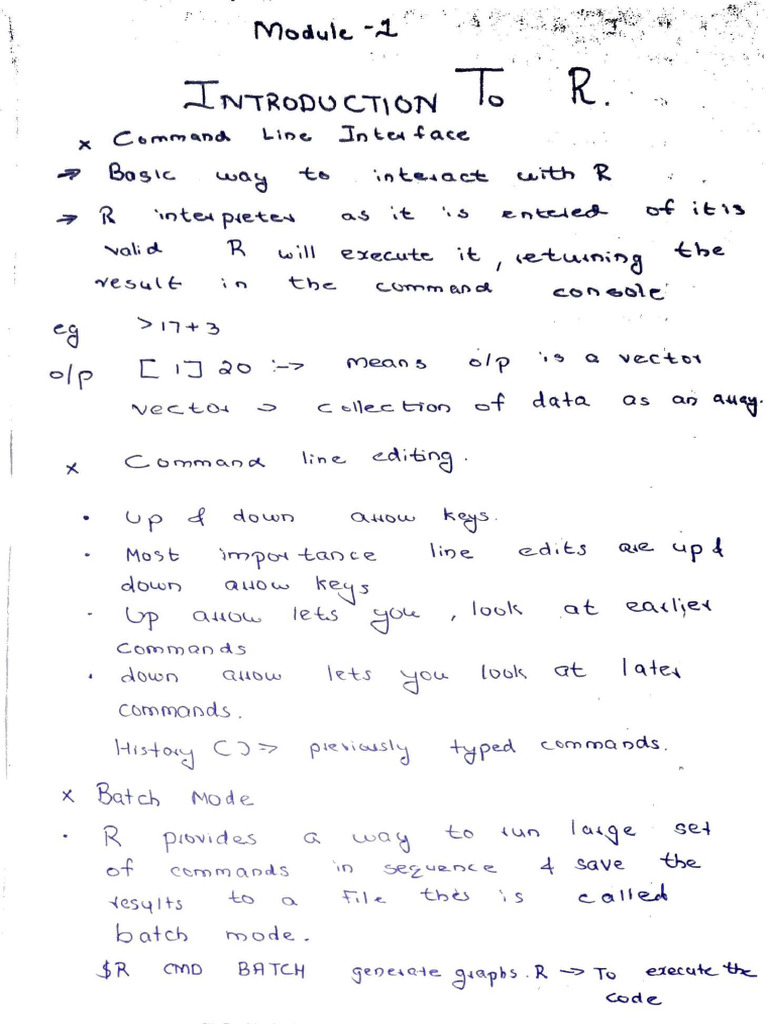 Module -1
INTRODUCTION To R.
x Command Line Interface
→ Basic way to interact with R
→ R interpreter as it is entered of it is
valid R will execute it, returning the
result in the command console
eg >17+3
o/p [1] 20 :-> means o/p is a vector
vector => collection of data as an array.
x Command line editing.
• Up & down arrow keys.
• Most importance line edits are up &
down arrow keys
• Up arrow lets you, look at earlier
commands
• down arrow lets you look at later
commands.
History () => previously typed commands.
x Batch Mode
• R provides a way to run large set
of commands in sequence & save the
results to a file this is called
batch mode.
$R CMD BATCH generate graphs.R → To execute the
code